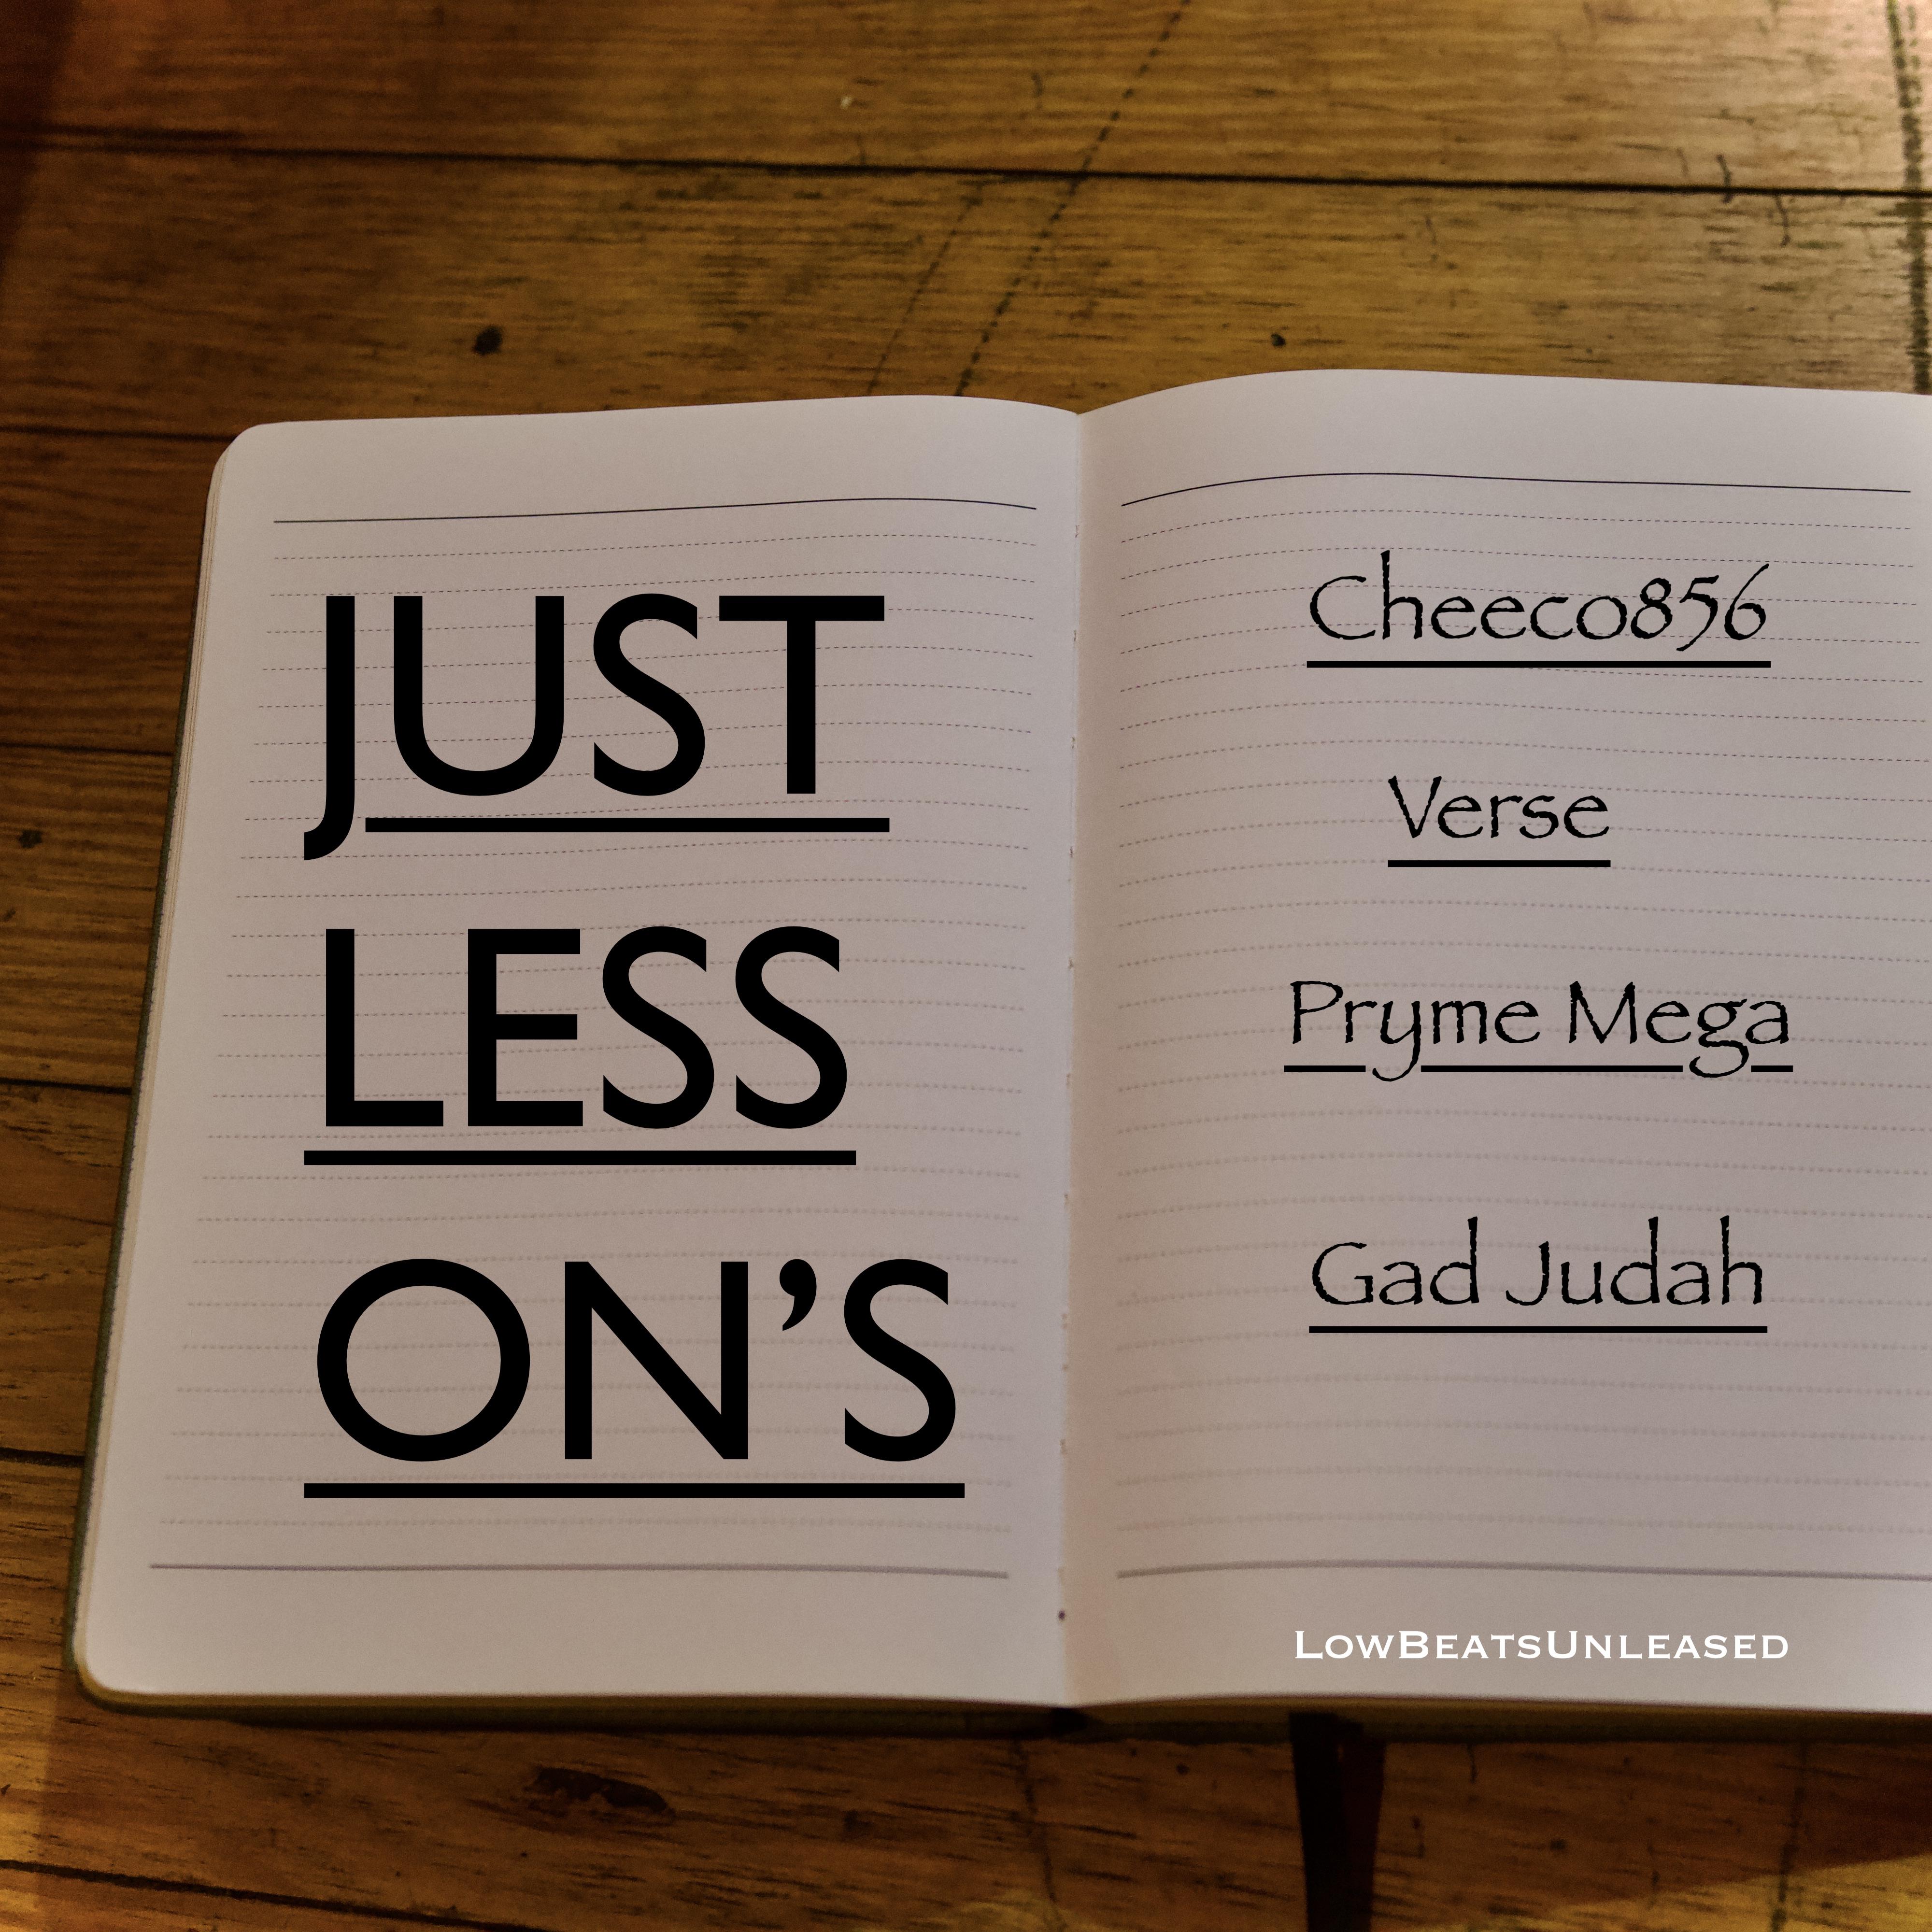 JUST
LESS
ON’S
Cheeco856
Verse
Pryme Mega
Gad Judah
LOWBEATSUNLEASED